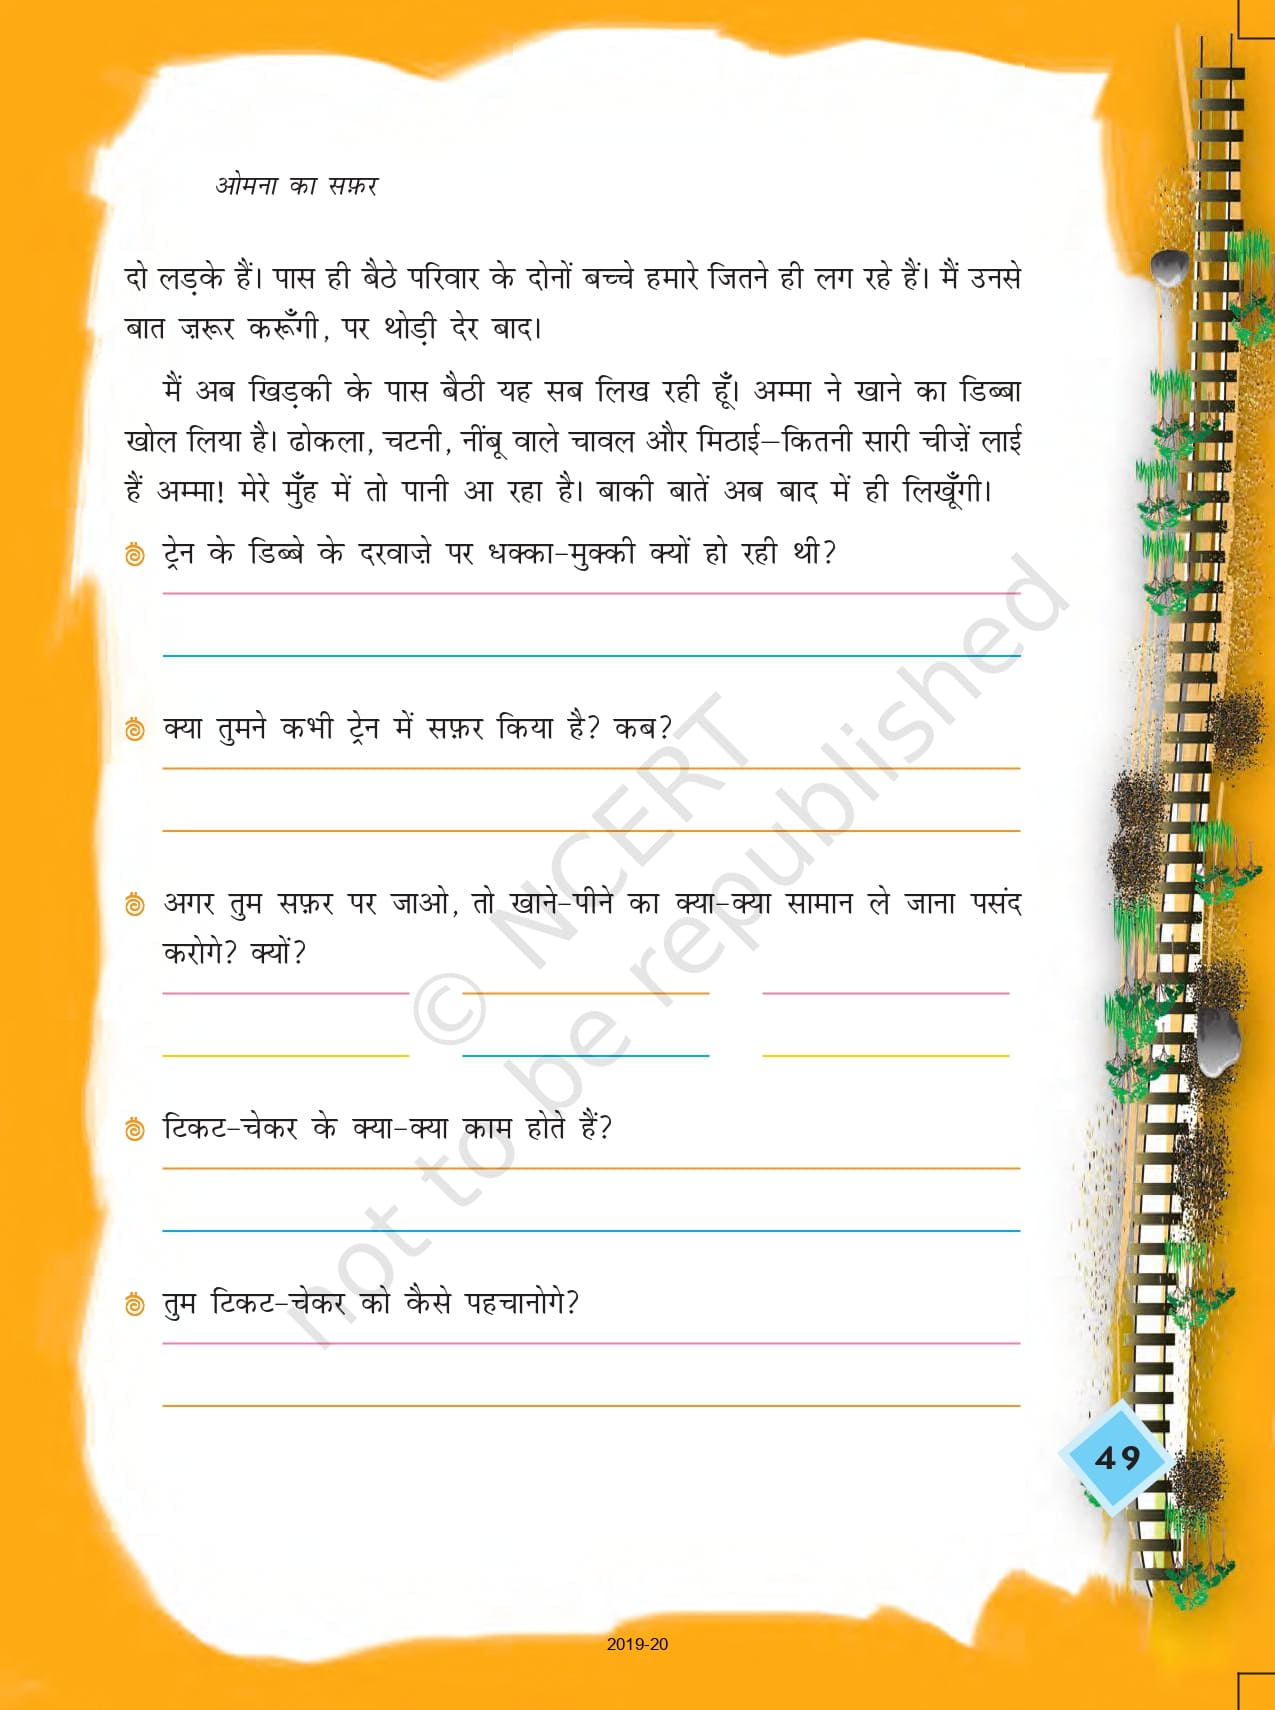 ओमना का सफ़र
दो लड़के हैं। पास ही बैठे परिवार के दोनों बच्चे हमारे जितने ही लग रहे हैं। मैं उनसे
बात ज़रूर करूँगी, पर थोड़ी देर बाद।
मैं अब खिड़की के पास बैठी यह सब लिख रही हूँ। अम्मा ने खाने का डिब्बा
खोल लिया है। ढोकला, चटनी, नींबू वाले चावल और मिठाई–कितनी सारी चीज़ें लाई
हैं अम्मा! मेरे मुँह में तो पानी आ रहा है। बाकी बातें अब बाद में ही लिखूँगी।
ट्रेन के डिब्बे के दरवाज़े पर धक्का-मुक्की क्यों हो रही थी?
क्या तुमने कभी ट्रेन में सफ़र किया है? कब?
अगर तुम सफ़र पर जाओ, तो खाने-पीने का क्या-क्या सामान ले जाना पसंद
करोगे? क्यों?
टिकट-चेकर के क्या-क्या काम होते हैं?
तुम टिकट-चेकर को कैसे पहचानोगे?
© NCERT
not to be republished
49
2019-20